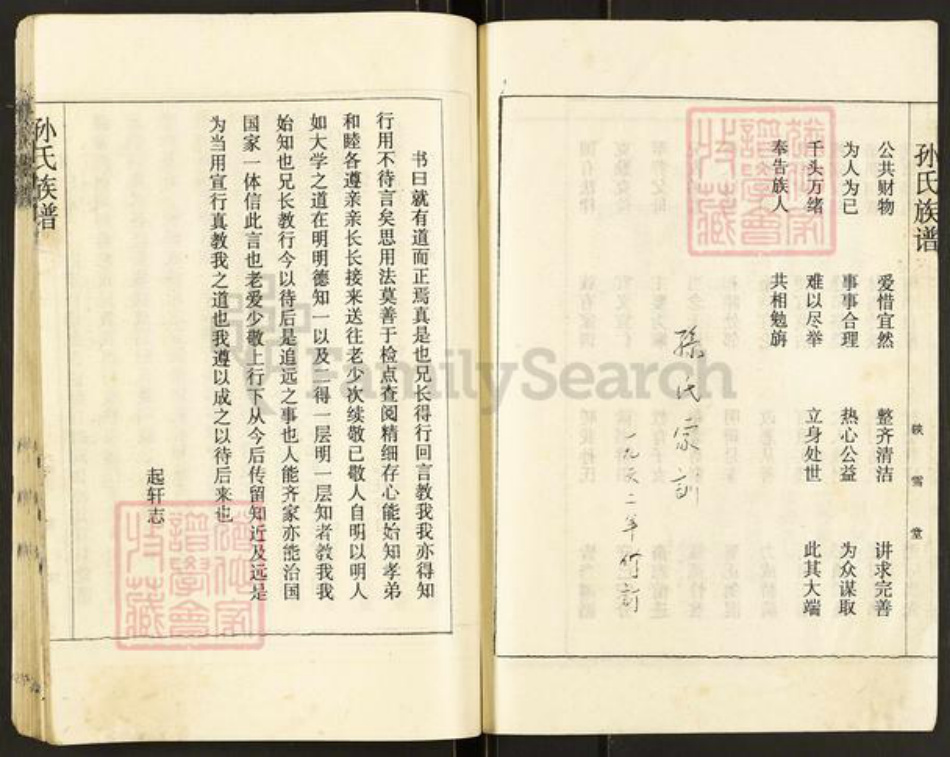 孙氏族谱
公共财物 爱惜宜然 整齐清洁 讲求完善
为人为己 事事合理 热心公益 为众谋取
千头万绪 难以尽举 立身处世 此其大端
奉告族人 共相勉旃
孫氏家訓
一九六二年修訂
映雪堂
书曰就有道而正焉真是也兄长得行回言教我我亦得知
行用不待言矣思用法莫善于检点查阅精细存心能始知孝弟
和睦各遵亲亲长长接来送往老少次续敬已敬人自明以明人
如大学之道在明明德知一以及二得一层明一层知者教我我
始知也兄长教行今以待后是追远之事也人能齐家亦能治国
国家一体信此言也老爱少敬上行下从今后传留知近及远是
为当用宣行真教我之道也我遵以成之以待后来也
起轩志
孙氏族谱
FamilySearch